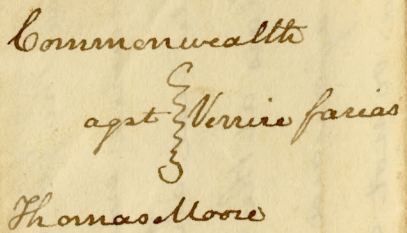 Commonwealth
agst Venire facias
Thomas Moore